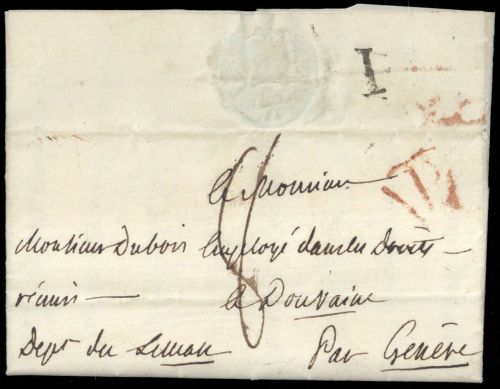 I
à Monsieur
Monsieur Dubois Employé dans les Droits
réunis
à Douvaine
Dept du Leman Par Genève